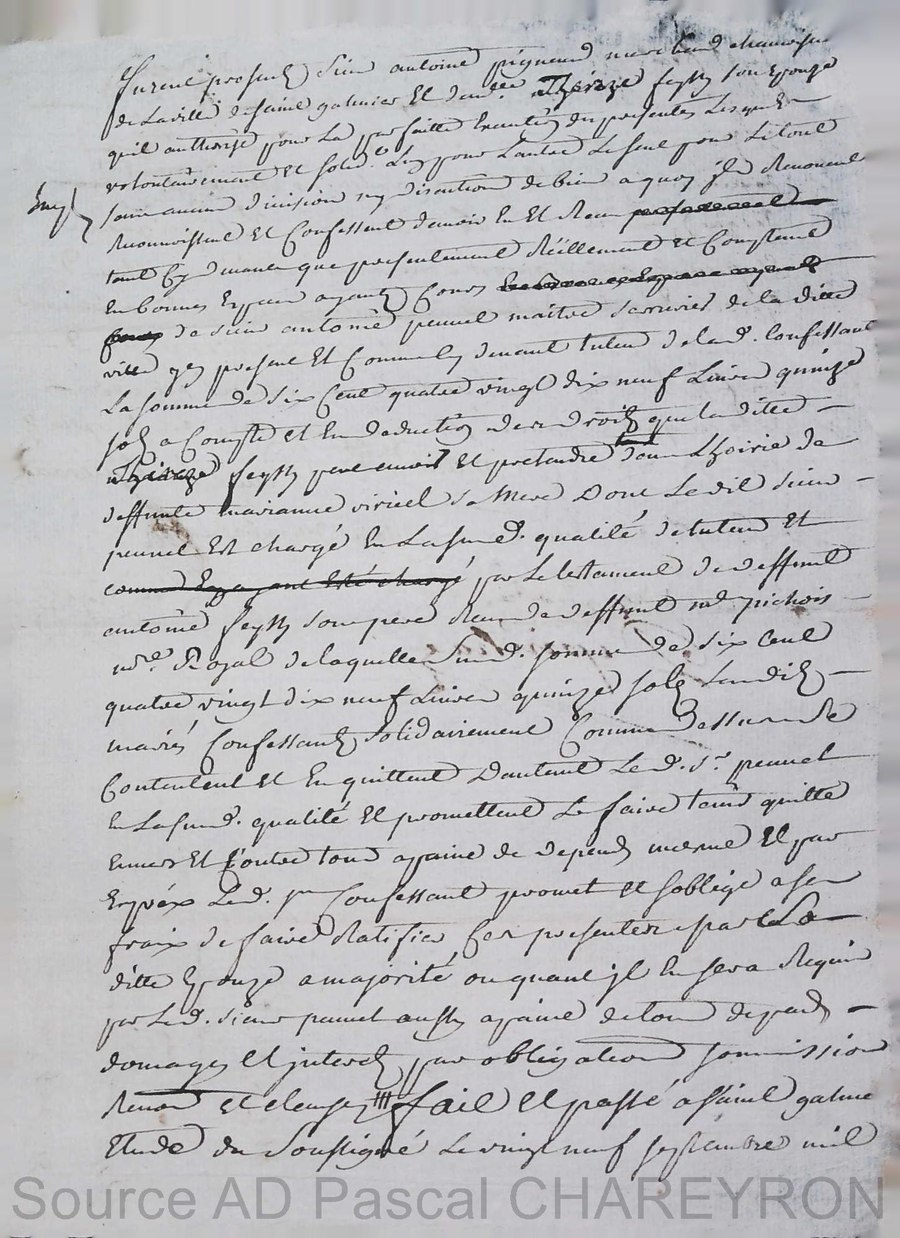 Furent presents Sieur antoine pigneud marchand chamoiseur
de La ville de saint galmier Et dem.lle Thérèze feyssy son Epouze
quil authorize pour La parfaitte Execution des presentes Lesquels
volontairement Et solid.t L'un pour L'autre Le seul pour Le tout
sans aucune division ny discution de bien a quoy ils Renoncent
Reconnoissent Et Confessent d'avoir Eu Et Reçu
tant Cy devant que presentement Réellement Et Comptant
En bonnes Especes ayant Cours
de sieur antoine peurel maitre serrurier de la ditte
ville yci present Et Comme Cy devant tuteur de lad. Confessant
La somme de six Cent quatre vingt dix neuf Livres quinze
sols a Compte et En deduction des droits que la ditte
Thérèze feyssy peut avoir Et pretendre dans L'hoirie de
deffunte marianne viriel sa Mere Dont Le dit sieur
peurel Est chargé En La susd. qualité de tuteur Et
par Le testament de deffunt
antoine feyssy son pere Reçu de deffunt m.e pichois
n.re Royal de laquelle susd. somme de six Cent
quatre vingt dix neuf Livres quinze sols Lesdits
mariés Confessants solidairement Comme dessus se
Contentent et En quittent D'autant Le d. S.r peurel
En La susd. qualité Et promettent Le faire tenir quitte
Envers Et Contre tous apaine de depends mesme Et par
Exprès Led. s.r Confessant promet et s'oblige a ses
fraix de faire Ratifier Ces presentes par La
ditte Epouze a majorité ou quant il En sera Requis
par Led. sieur peurel aussy apaine de tous depends
domages Et interets par obligation soumission
Renon Et clauses fait Et passé a saint galmier
Etude du Soussigné Le vingt neuf septembre mil
Source AD Pascal CHAREYRON